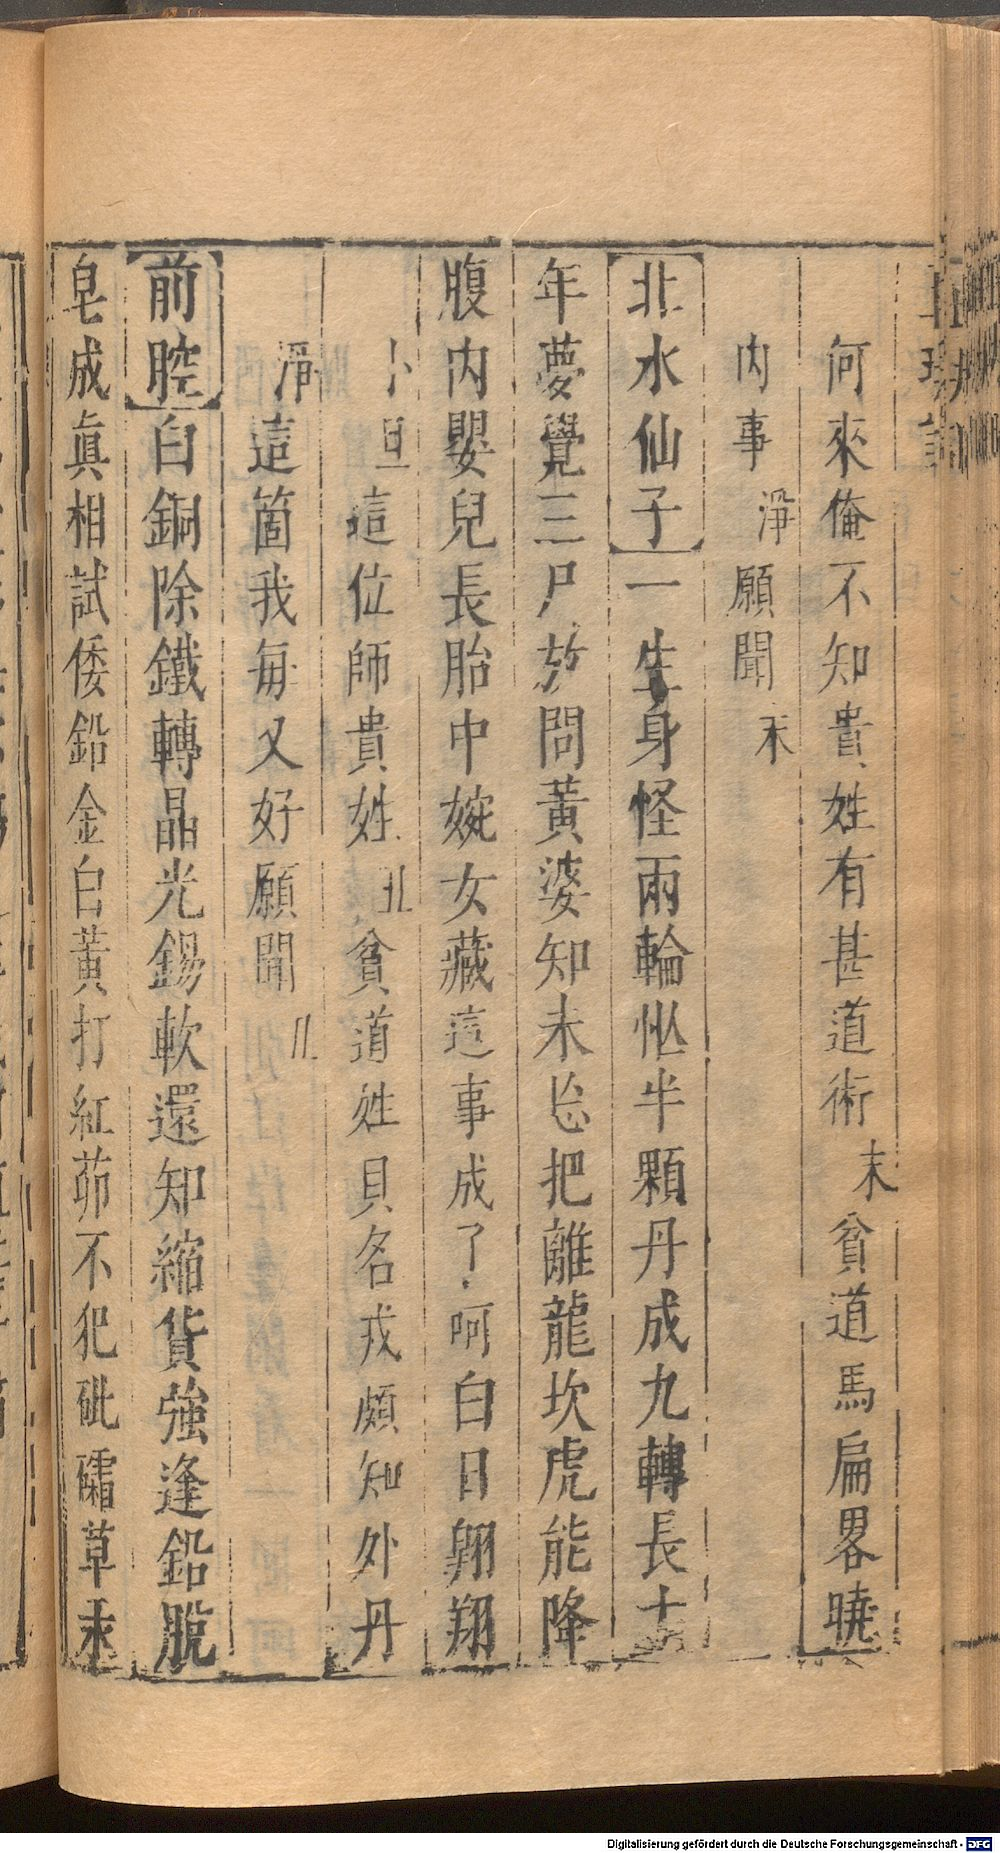 何來俺不知貴姓有甚道術末貧道馬扁畧曉
內事淨願聞末
北水仙子一生身怪兩輪怭半顆丹成九轉長十
年夢覺三尸放問黃婆知未怂把離龍坎虎能降
腹內嬰兒長胎中婉女藏這事成了呵白日翱翔
小旦這位師貴姓丑貧道姓貝名戎頗知外丹
淨這箇我每又好願聞丑
前腔白銅除鐵轉晶光錫軟還知縮貨強逢鉛脫
皂成眞相試倭鉛金白黃打紅茆不犯砒礵草汞
Digitalisierung gefördert durch die Deutsche Forschungsgemeinschaft - DFG